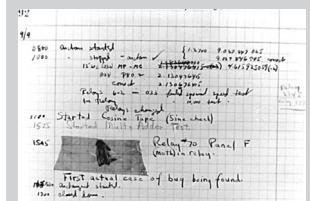 92
9/9
0800 antan started
1000 " stopped - antan ✓ { 1.2700 9.037 847 025
9.037 846 995 correct
13" uc (032) MP - MC 4.615925059(-2)
(033) PRO 2 2.130476415
correct 2.130676415
Relays 6-2 in 033 failed special speed test
in relay " test.
Relays changed
1100 Started Cosine Tape (Sine check)
1525 Started Multi Adder Test.
1545 Relay #70 Panel F
(moth) in relay.
First actual case of bug being found.
antangent started.
1700 closed down.